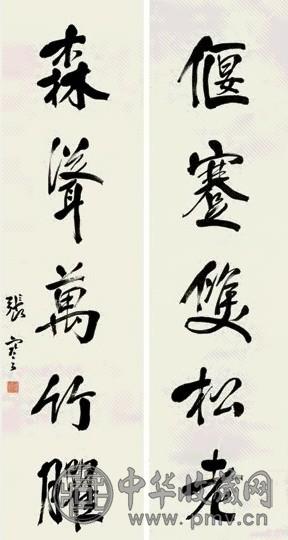 偃蹇雙松老
森聳萬竹臞
張寒
中华收藏网
www.pmv.cn